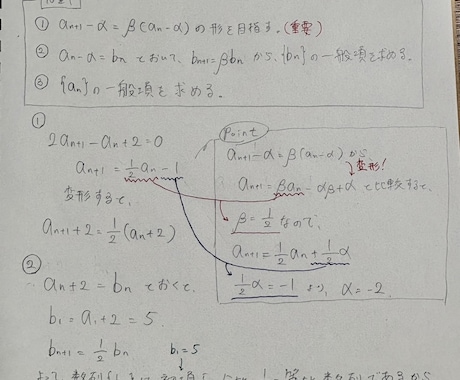 ① an+1-α=β(an-α)の形を目指す。(重要)
② an-α=bn とおいて、bn+1=βbn から、{bn}の一般項を求める。
③ {an}の一般項を求める。
①
2an+1-an+2=0
an+1=1/2an-1
変形すると、
an+1+2=1/2(an+2)
Point
an+1-α=β(an-α)から
変形!
an+1=βan-αβ+α と比較すると、
β=1/2なので、
an+1=1/2an+1/2α
1/2α=-1 より、α=-2.
②
an+2=bn とおくと、
b1=a1+2=5.
bn+1=1/2bn b1=5